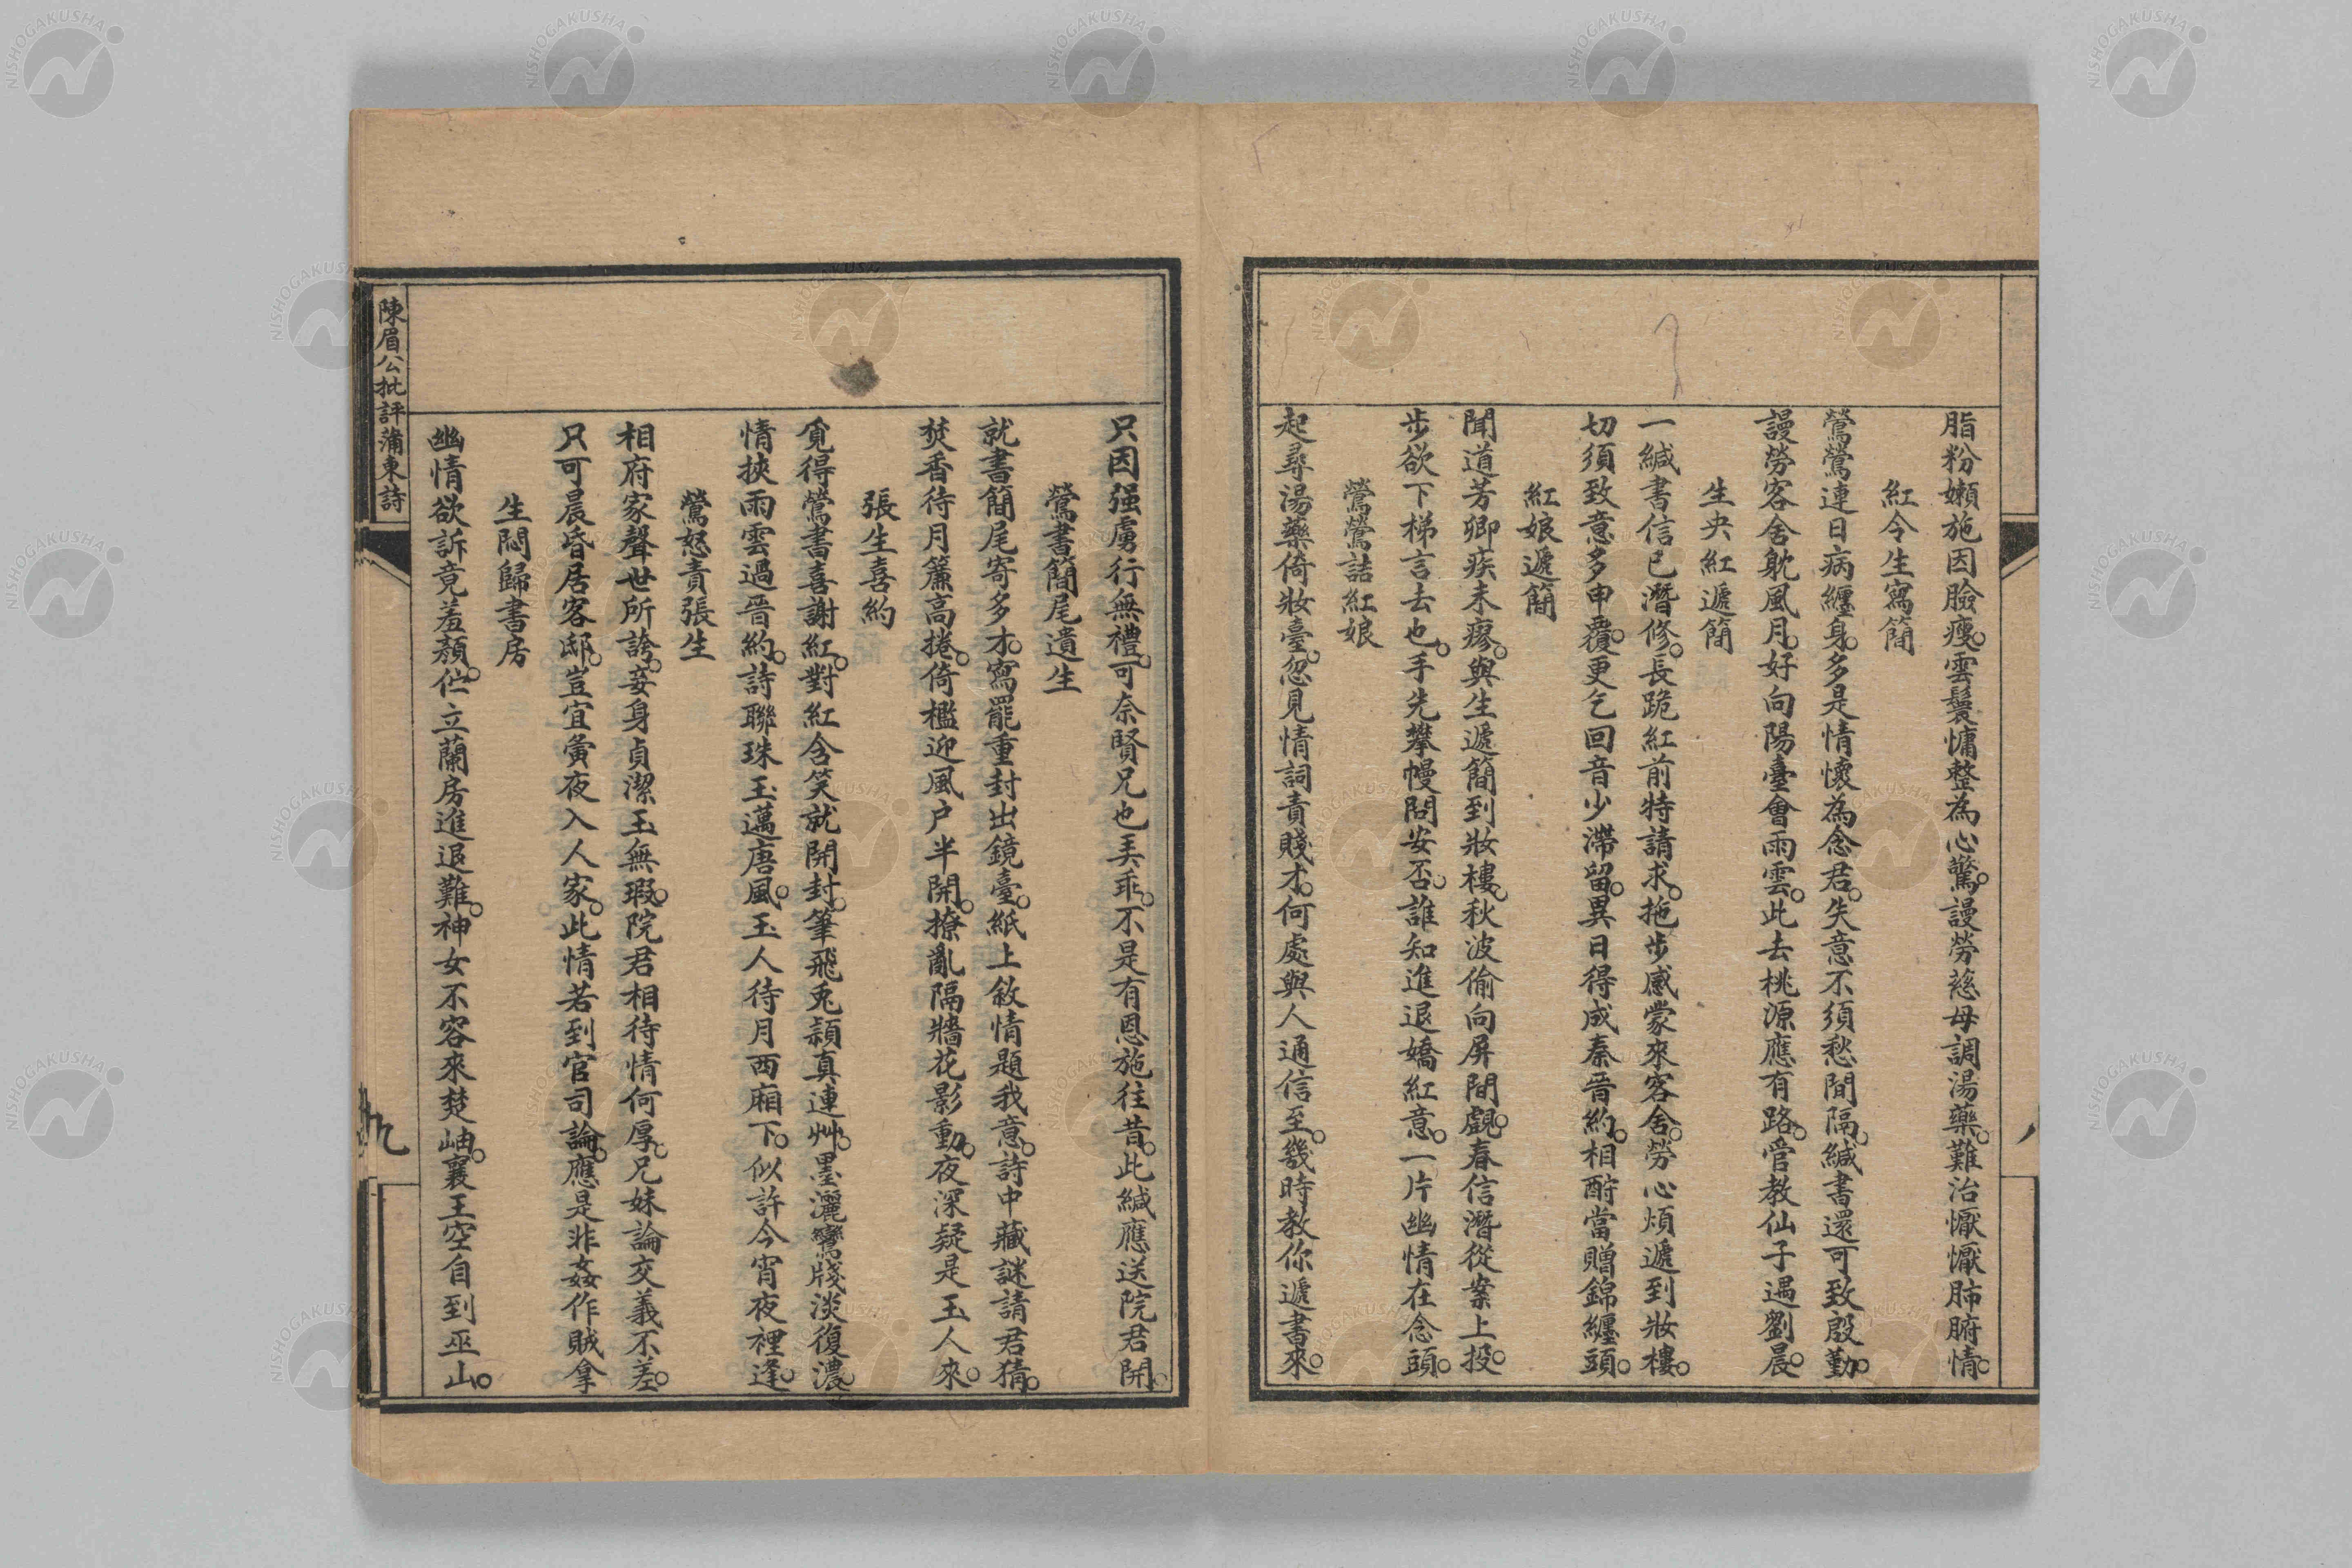 脂粉嬾施因臉瘦雲鬟慵整為心驚謾勞慈母調湯藥難治懨懨肺腑情
紅令生寫簡
鶯鶯連日病纏身多是情懷為念君失意不須愁間隔緘書還可致殷勤
謾勞客舍躭風月好向陽臺會雨雲此去桃源應有路管教仙子遇劉晨
生央紅遞簡
一緘書信已潛修長跪紅前特請求拖步感蒙來客舍勞心煩遞到妝樓
切須致意多申覆更乞回音少滯留異日得成秦晉約相酧當贈錦纏頭
紅娘遞簡
聞道芳卿疾未瘳與生遞簡到妝樓秋波偷向屏間覷春信潛從案上投
步欲下梯言去也手先攀幔問安否誰知進退嬌紅意一片幽情在念頭
鶯鶯詰紅娘
起尋湯藥倚妝臺忽見情詞責賤才何處與人通信至幾時教你遞書來
只因强虜行無禮可奈賢兄也弄乖不是有恩施往昔此緘應送院君開
鶯書簡尾遺生
就書簡尾寄多才寫罷重封出鏡臺紙上敘情題我意詩中藏謎請君猜
焚香待月簾高捲倚檻迎風户半開撩亂隔牆花影動夜深疑是玉人來
張生喜約
覓得鶯書喜謝紅對紅含笑就開封筆飛兎頴真連艸墨灑鸞牋淡復濃
情挾雨雲過晉約詩聯珠玉邁唐風玉人待月西廂下似許今宵夜裡逢
鶯怒責張生
相府家聲世所誇妾身貞潔玉無瑕院君相待情何厚兄妹論交義不差
只可晨昏居客邸豈宜夤夜入人家此情若到官司論應是非姦作賊拿
生悶歸書房
幽情欲訴竟羞顏伫立蘭房進退難神女不容來楚岫襄王空自到巫山
陳眉公批評蒲東詩
九
NISHOGAKUSHA